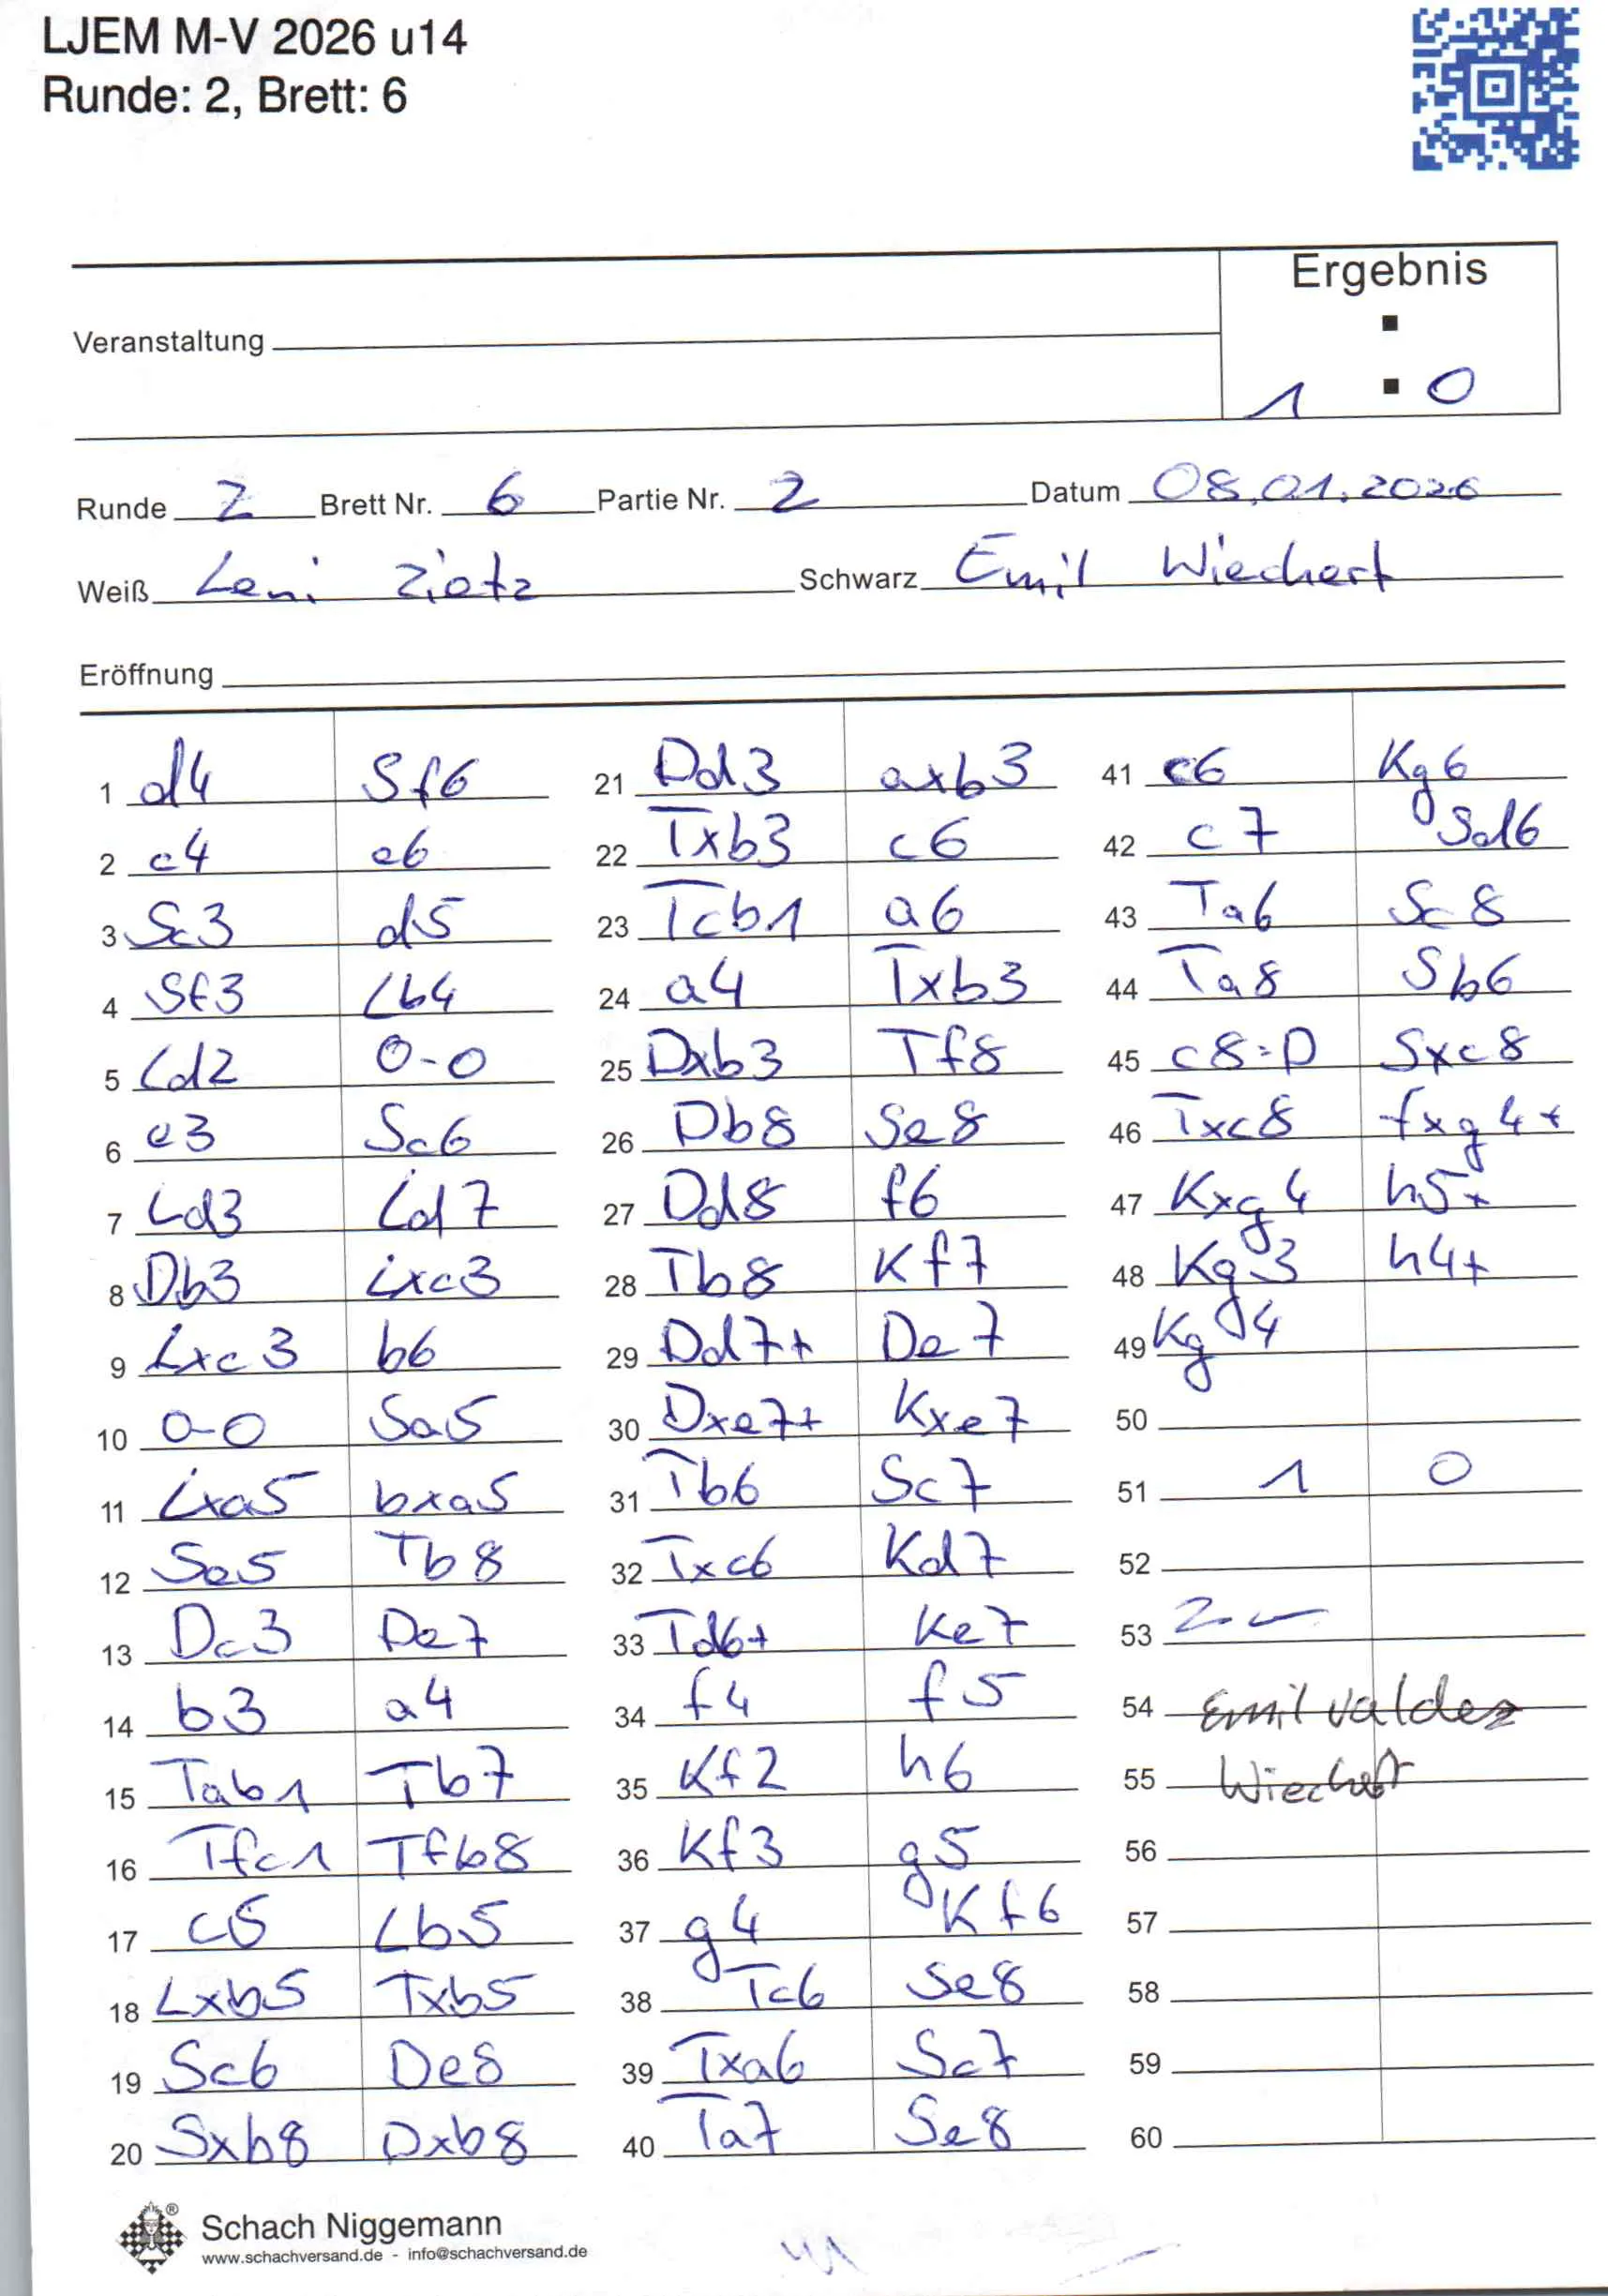 LJEM M-V 2026 u14
Runde: 2, Brett: 6
Ergebnis
:
Veranstaltung
1 : 0
Runde 2 Brett Nr. 6 Partie Nr. 2 Datum 08.01.2026
Weiß Leni Zietz Schwarz Emil Wiechert
Eröffnung
1 d4 Sf6
2 c4 e6
3 Sc3 d5
4 Sf3 Lb4
5 Ld2 0-0
6 e3 Sc6
7 Ld3 Ld7
8 Db3 Lxc3
9 Lxc3 b6
10 0-0 Sa5
11 Lxa5 bxa5
12 Se5 Tb8
13 Dc3 De7
14 b3 a4
15 Tab1 Tb7
16 Tfc1 Tfb8
17 c5 Lb5
18 Lxb5 Txb5
19 Sc6 De8
20 Sxb8 Dxb8
21 Dd3 axb3
22 Txb3 c6
23 Tcb1 a6
24 a4 Txb3
25 Dxb3 Tf8
26 Db8 Se8
27 Dd8 f6
28 Tb8 Kf7
29 Dd7+ De7
30 Dxe7+ Kxe7
31 Tb6 Sc7
32 Txc6 Kd7
33 Td6+ Ke7
34 f4 f5
35 Kf2 h6
36 Kf3 g5
37 g4 Kf6
38 Tc6 Se8
39 Txa6 Sc7
40 Ta7 Se8
41 c6 Kg6
42 c7 Sd6
43 Ta6 Sc8
44 Ta8 Sb6
45 c8=D Sxc8
46 Txc8 fxg4+
47 Kxg4 h5+
48 Kg3 h4+
49 Kg4
50
51 1 0
52
53
54 Emil Valdez
55 Wiechert
56
57
58
59
60
Schach Niggemann
www.schachversand.de - info@schachversand.de